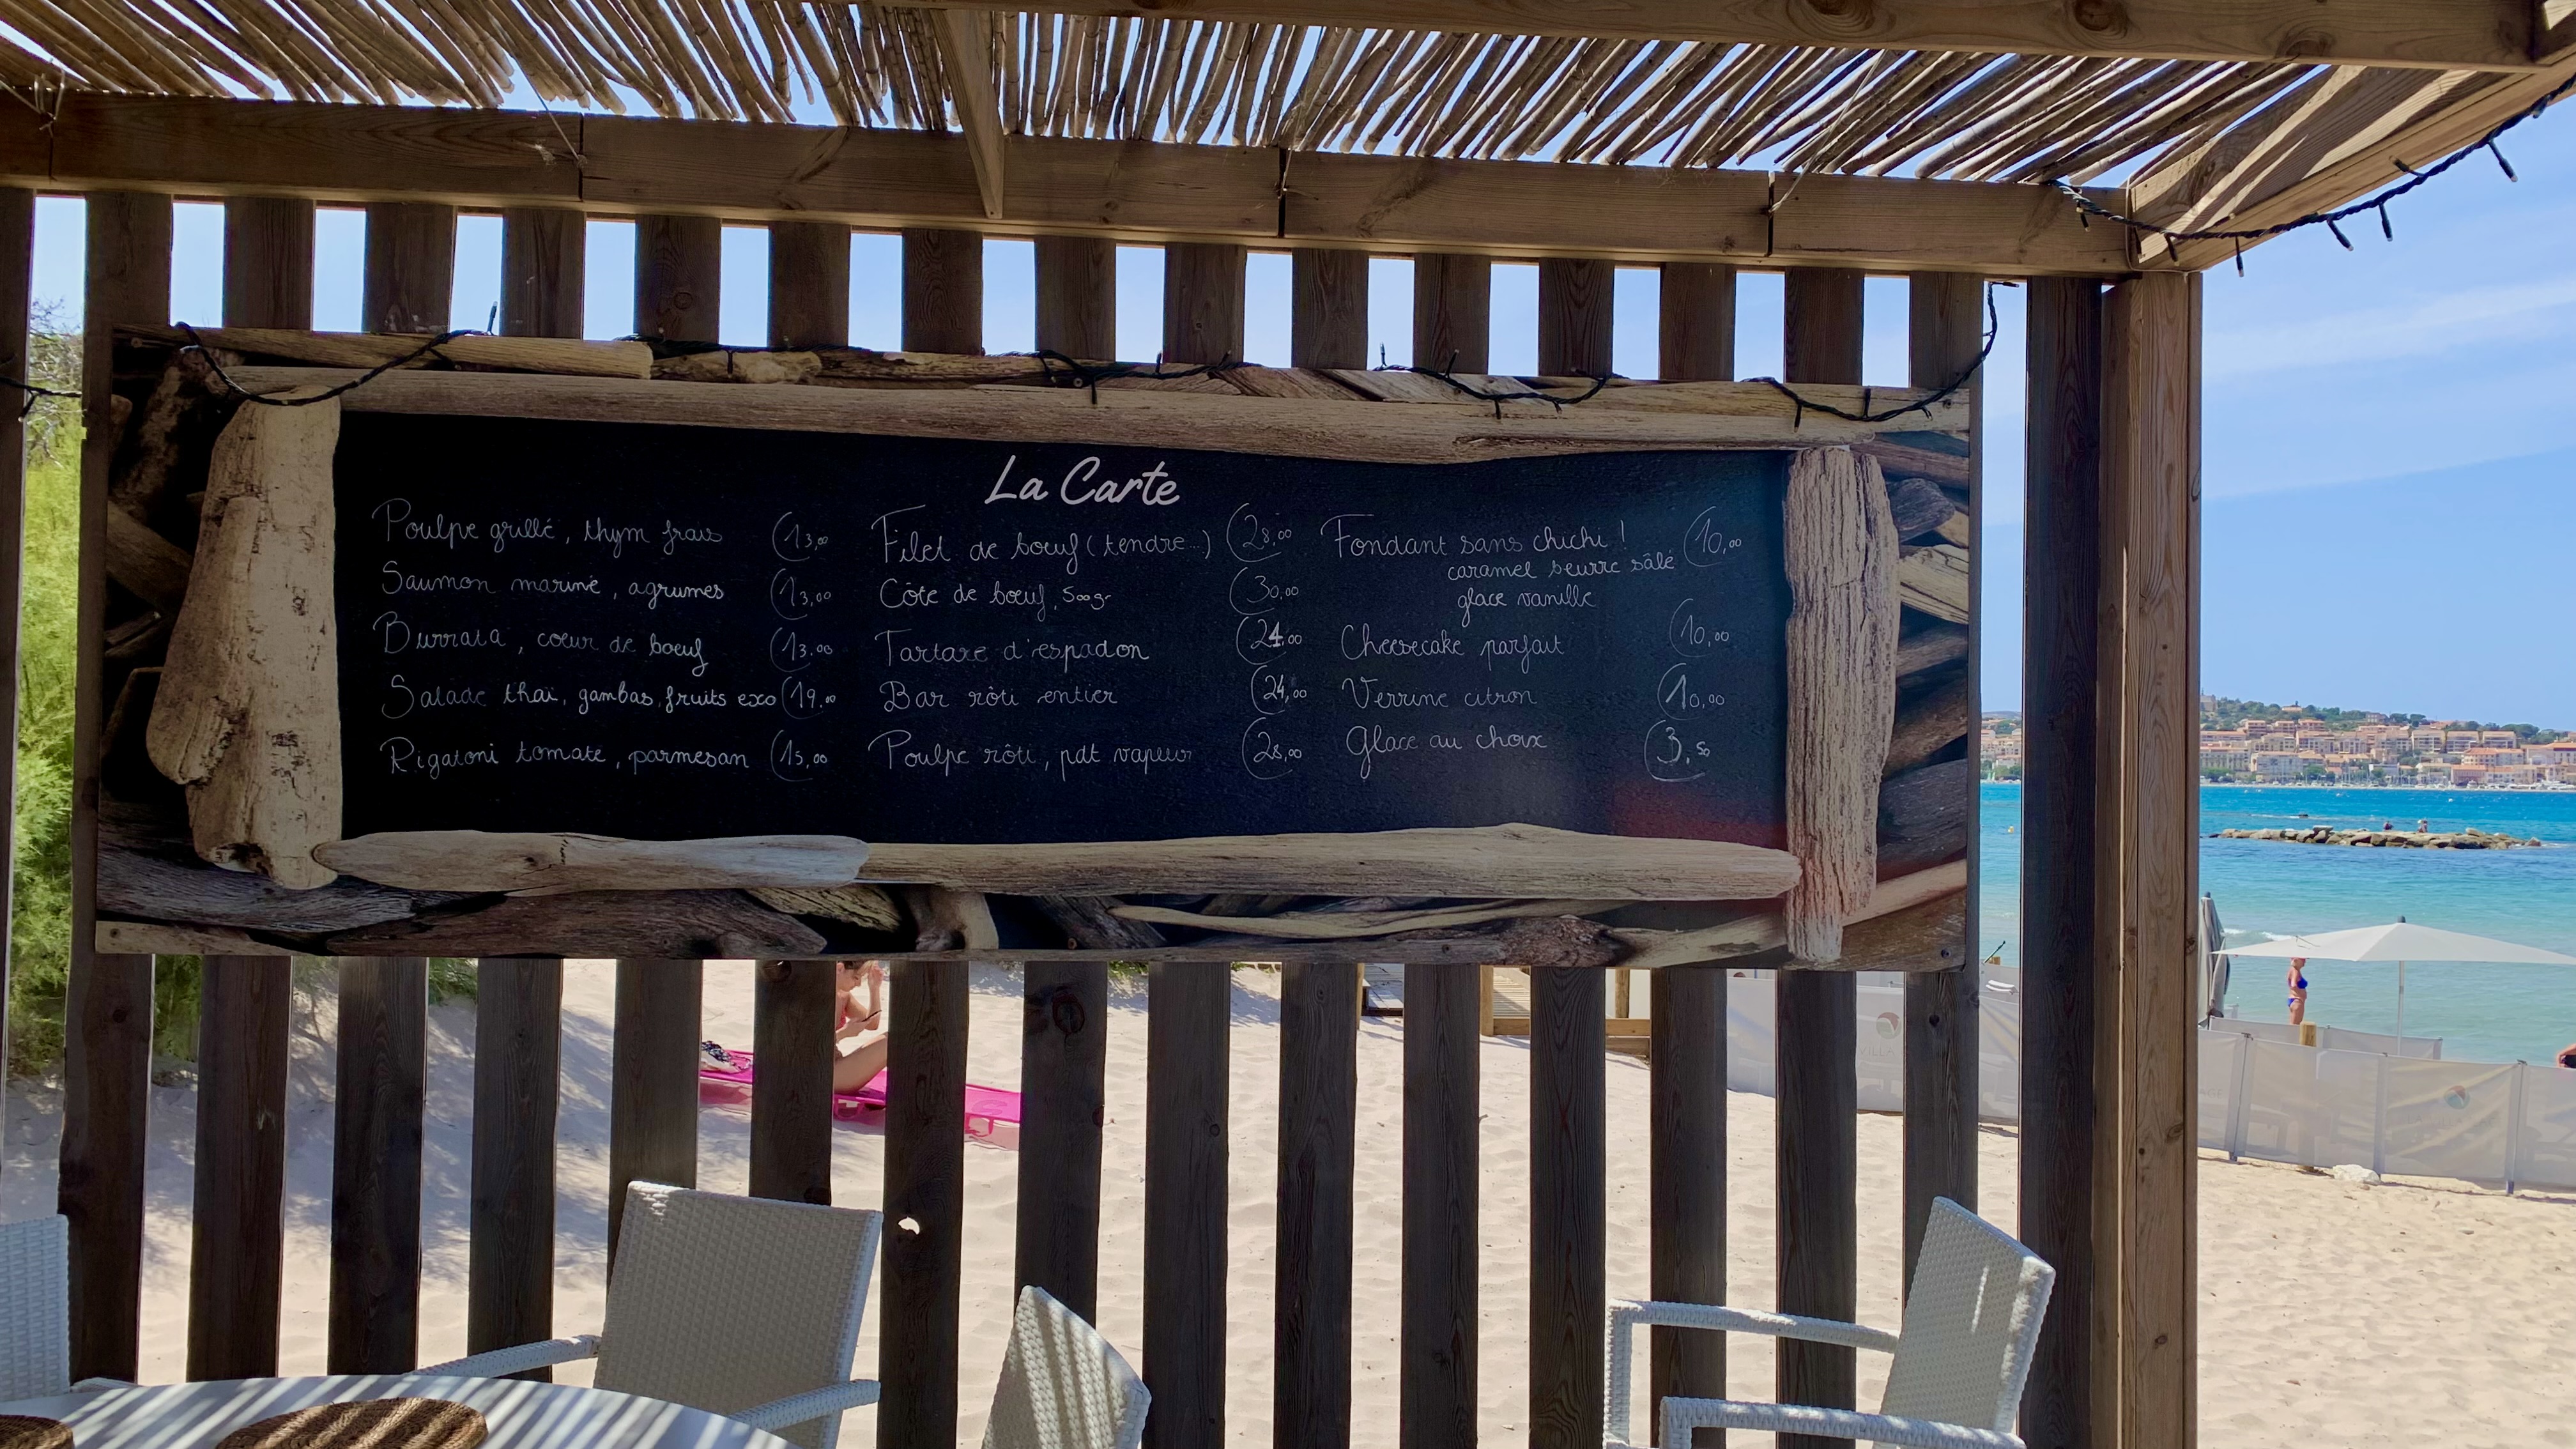 La Carte
Poulpe grillé, thym frais 13,00
Saumon mariné, agrumes 13,00
Burrata, cœur de bœuf 13.00
Salade thaï, gambas, fruits exo 19.00
Rigatoni tomate, parmesan 15,00
Filet de bœuf (tendre...) 28,00
Côte de bœuf, 500gr 30,00
Tartare d'espadon 24.00
Bar rôti entier 24,00
Poulpe rôti, pdt vapeur 28,00
Fondant sans chichi ! 10,00
caramel beurre sâlé
glace vanille
Cheesecake parfait 10,00
Verrine citron 10,00
Glace au choix 3,50